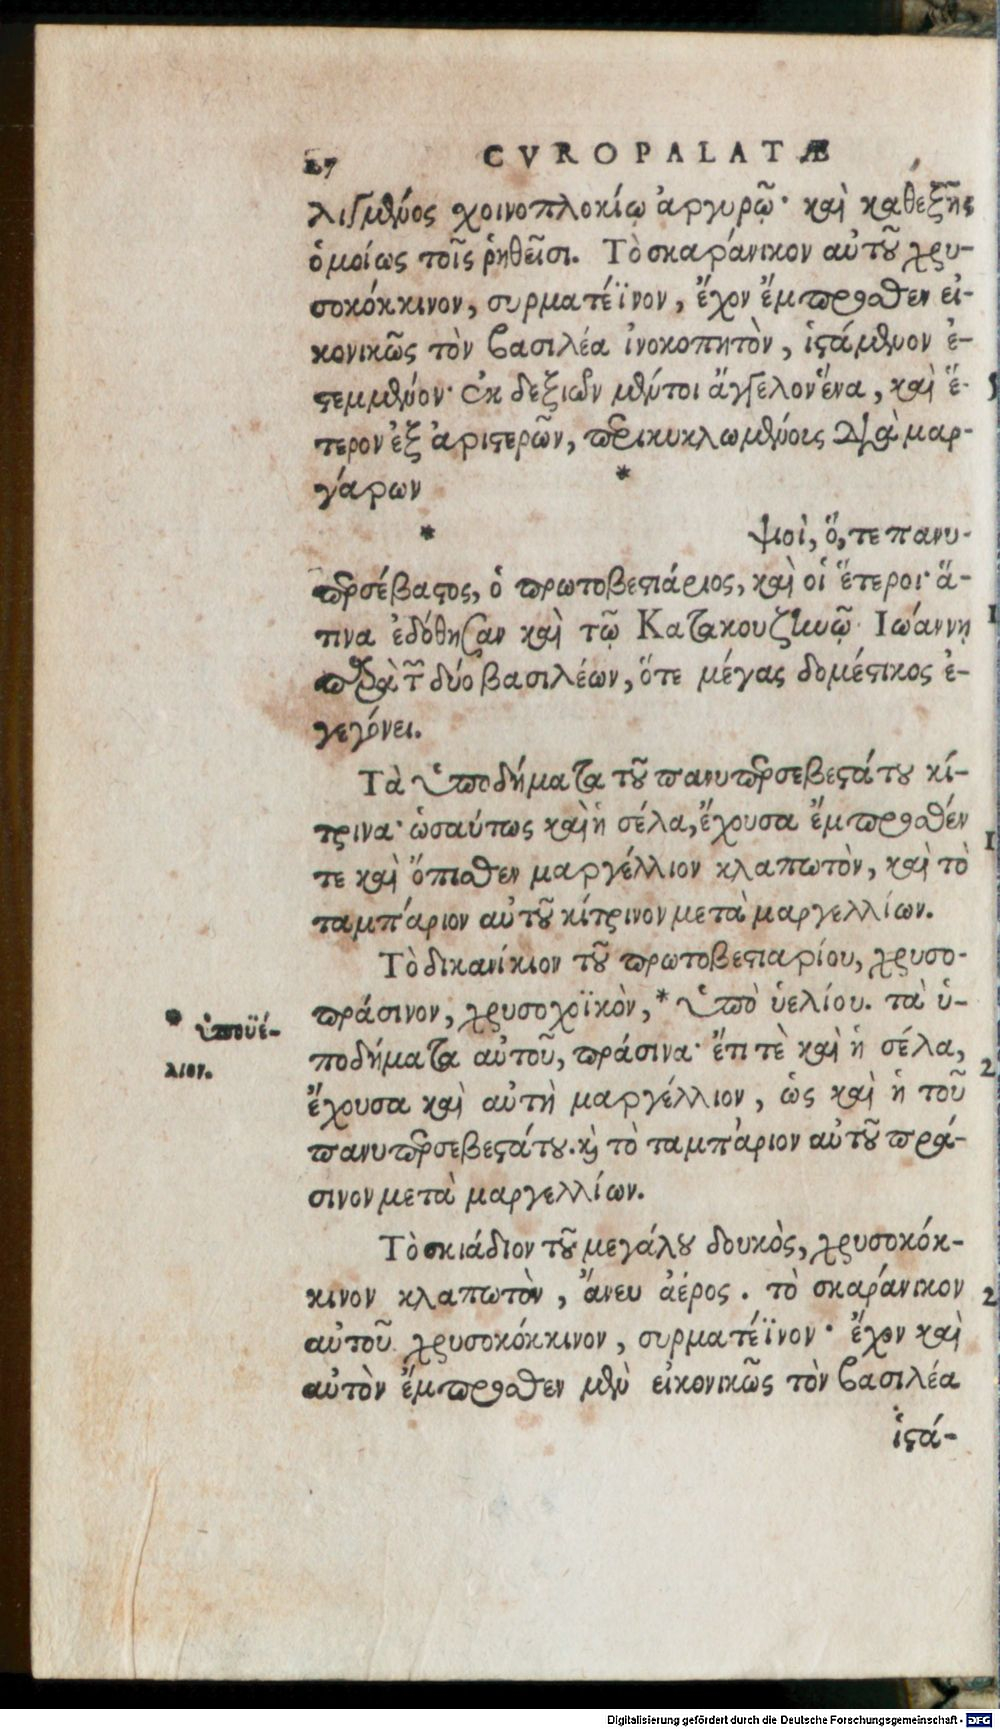 27 CVROPALATÆ
λισμένος χοινοπλοκίῳ ἀργυρῷ· καὶ καθεξῆς
ὁμοίως τοῖς ῥηθεῖσι. Τὸ σκαράνικον αὐτοῦ χρυ-
σοκόκκινον, συρματέϊνον, ἔχον ἔμπροσθεν εἰ-
κονικῶς τὸν βασιλέα ἰνοκοπητὸν, ἱστάμενον ἐ-
στεμμένον· ἐκ δεξιῶν μέντοι ἄγγελον ἕνα, καὶ ἕ-
τερον ἐξ ἀριστερῶν, περικυκλωμένοις διὰ μαρ-
γάρων *
* ψιοὶ, ὅ, τε πανυ-
περσέβαστος, ὁ πρωτοβεστιάριος, καὶ οἱ ἕτεροι· ἅ-
τινα ἐδόθησαν καὶ τῷ Κατακουζηνῷ Ἰωάννῃ
παρὰ τῶν δύο βασιλέων, ὅτε μέγας δομέστικος ἐ-
γεγόνει.
Τὰ ὑποδήματα τοῦ πανυπερσεβεστάτου κί-
τρινα· ὡσαύτως καὶ ἡ σέλα, ἔχουσα ἔμπροσθέν
τε καὶ ὄπισθεν μαργέλλιον κλαπωτὸν, καὶ τὸ
ταμπάριον αὐτοῦ κίτρινον μετὰ μαργελλίων.
Τὸ δικανίκιον τοῦ πρωτοβεστιαρίου, χρυσο-
πράσινον, χρυσοχοϊκὸν, * ὑπὸ ὑελίου. τὰ ὑ-
* ὑποϋέ-
λιον.
ποδήματα αὐτοῦ, πράσινα· ἔτι τὲ καὶ ἡ σέλα,
ἔχουσα καὶ αὐτὴ μαργέλλιον, ὡς καὶ ἡ τοῦ
πανυπερσεβεστάτου. καὶ τὸ ταμπάριον αὐτοῦ πρά-
σινον μετὰ μαργελλίων.
Τὸ σκιάδιον τοῦ μεγάλου δουκὸς, χρυσοκόκ-
κινον κλαπωτὸν, ἄνευ ἀέρος. τὸ σκαράνικον
αὐτοῦ χρυσοκόκκινον, συρματέϊνον· ἔχον καὶ
αὐτὸν ἔμπροσθεν μὲν εἰκονικῶς τὸν βασιλέα
ἱστά-
Digitalisierung gefördert durch die Deutsche Forschungsgemeinschaft - DFG